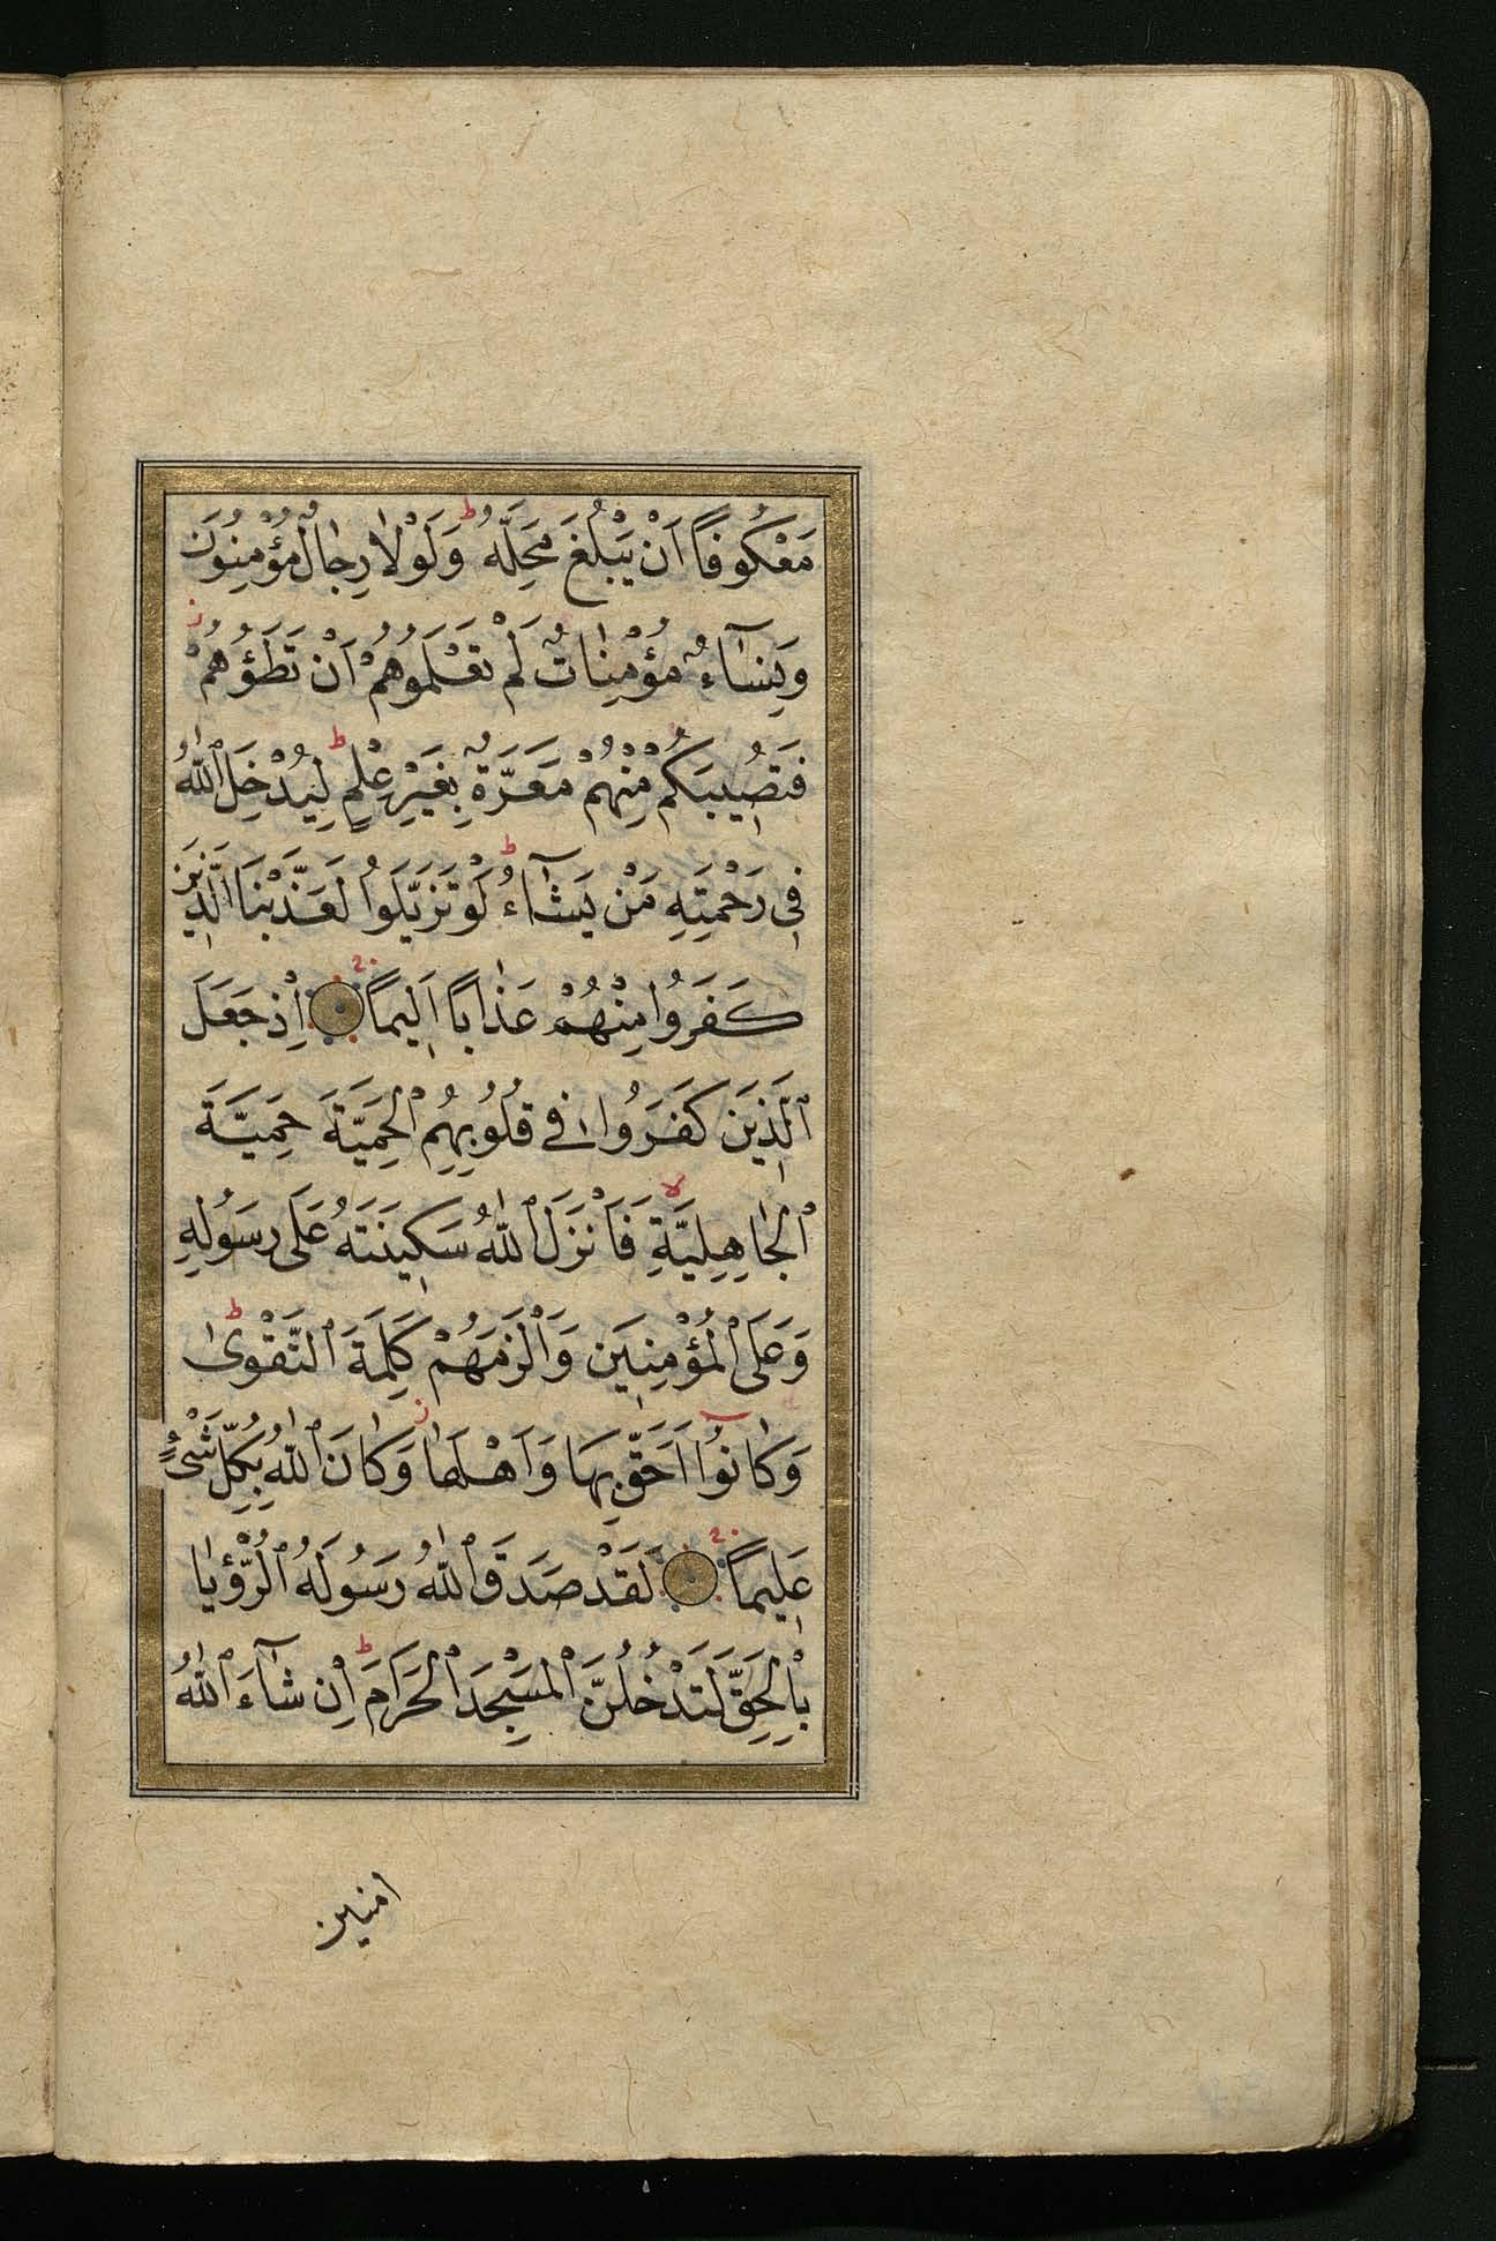 مَعْكُوفًا اَنْ يَبْلُغَ مَحِلَّهُ ط وَلَوْلَا رِجَالٌ مُؤْمِنُونَ
وَنِسَآءٌ مُؤْمِنَاتٌ لَمْ تَعْلَمُوهُمْ اَنْ تَطَؤُهُمْ ز
فَتُصِيبَكُمْ مِنْهُمْ مَعَرَّةٌ بِغَيْرِ عِلْمٍ ط لِيُدْخِلَ ٱللّٰهُ
فِى رَحْمَتِهِ مَنْ يَشَآءُ ط لَوْ تَزَيَّلُوا لَعَذَّبْنَا الَّذِينَ
كَفَرُوا مِنْهُمْ عَذَابًا اَلِيمًا اِذْ جَعَلَ
ٱلَّذِينَ كَفَرُوا فِى قُلُوبِهِمُ ٱلْحَمِيَّةَ حَمِيَّةَ
ٱلْجَاهِلِيَّةِ لا فَاَنْزَلَ ٱللّٰهُ سَكِينَتَهُ عَلَى رَسُولِهِ
وَعَلَى ٱلْمُؤْمِنِينَ وَاَلْزَمَهُمْ كَلِمَةَ ٱلتَّقْوٰى ط
وَكَانُوٓا اَحَقَّ بِهَا وَاَهْلَهَا ز وَكَانَ ٱللّٰهُ بِكُلِّ شَىْءٍ
عَلِيمًا لَقَدْ صَدَقَ ٱللّٰهُ رَسُولَهُ ٱلرُّؤْيَا
بِالْحَقِّ لَتَدْخُلُنَّ ٱلْمَسْجِدَ ٱلْحَرَامَ ط اِنْ شَآءَ ٱللّٰهُ
امنين